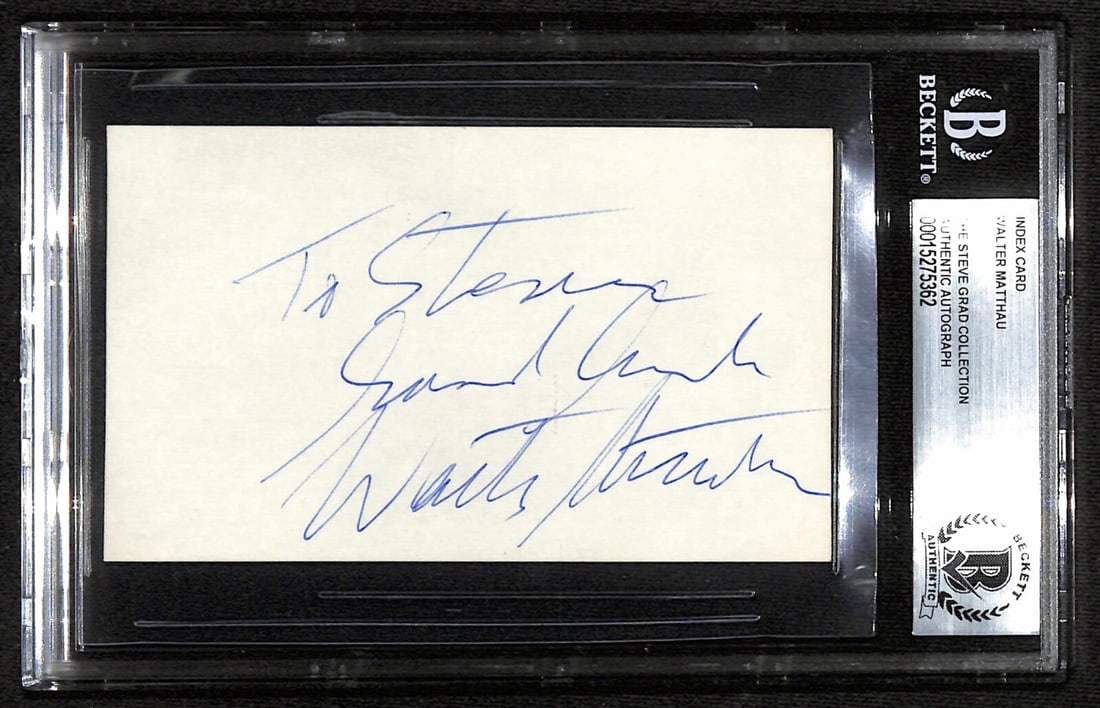 To Steven
Good Luck
Walter Matthau
BECKETT®
INDEX CARD
WALTER MATTHAU
THE STEVE GRAD COLLECTION
AUTHENTIC AUTOGRAPH
00015275362
BECKETT
AUTHENTIC